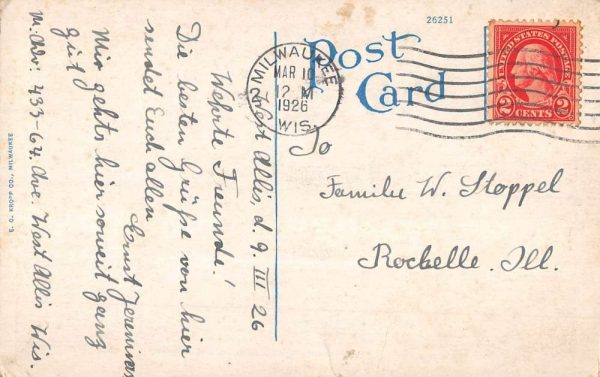 26251
Post
Card
MILWAUKEE
MAR 10
12 M
1926
WIS.
UNITED STATES POSTAGE
2 CENTS 2
West Allis, d. 9. III 26
Wehrte Freunde!
Die besten Grüße von hier
sendet Euch allen
Ernst
Mir gehts hier soweit ganz
gut
M. Adr: 433-64 Ave. West Allis Wis.
To
Familie W. Stoppel
Rochelle. Ill.
E. C. KROPP CO., MILWAUKEE